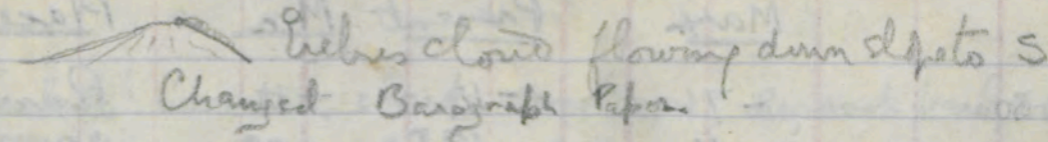 Erebus cloud flowing down slope to S
Changed Barograph Paper.